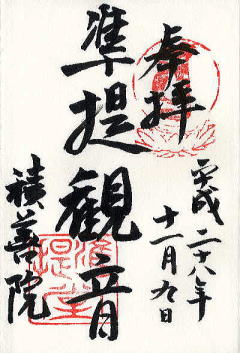 奉拝
平成二十八年
十一月九日
準提観音
積善院
準提堂